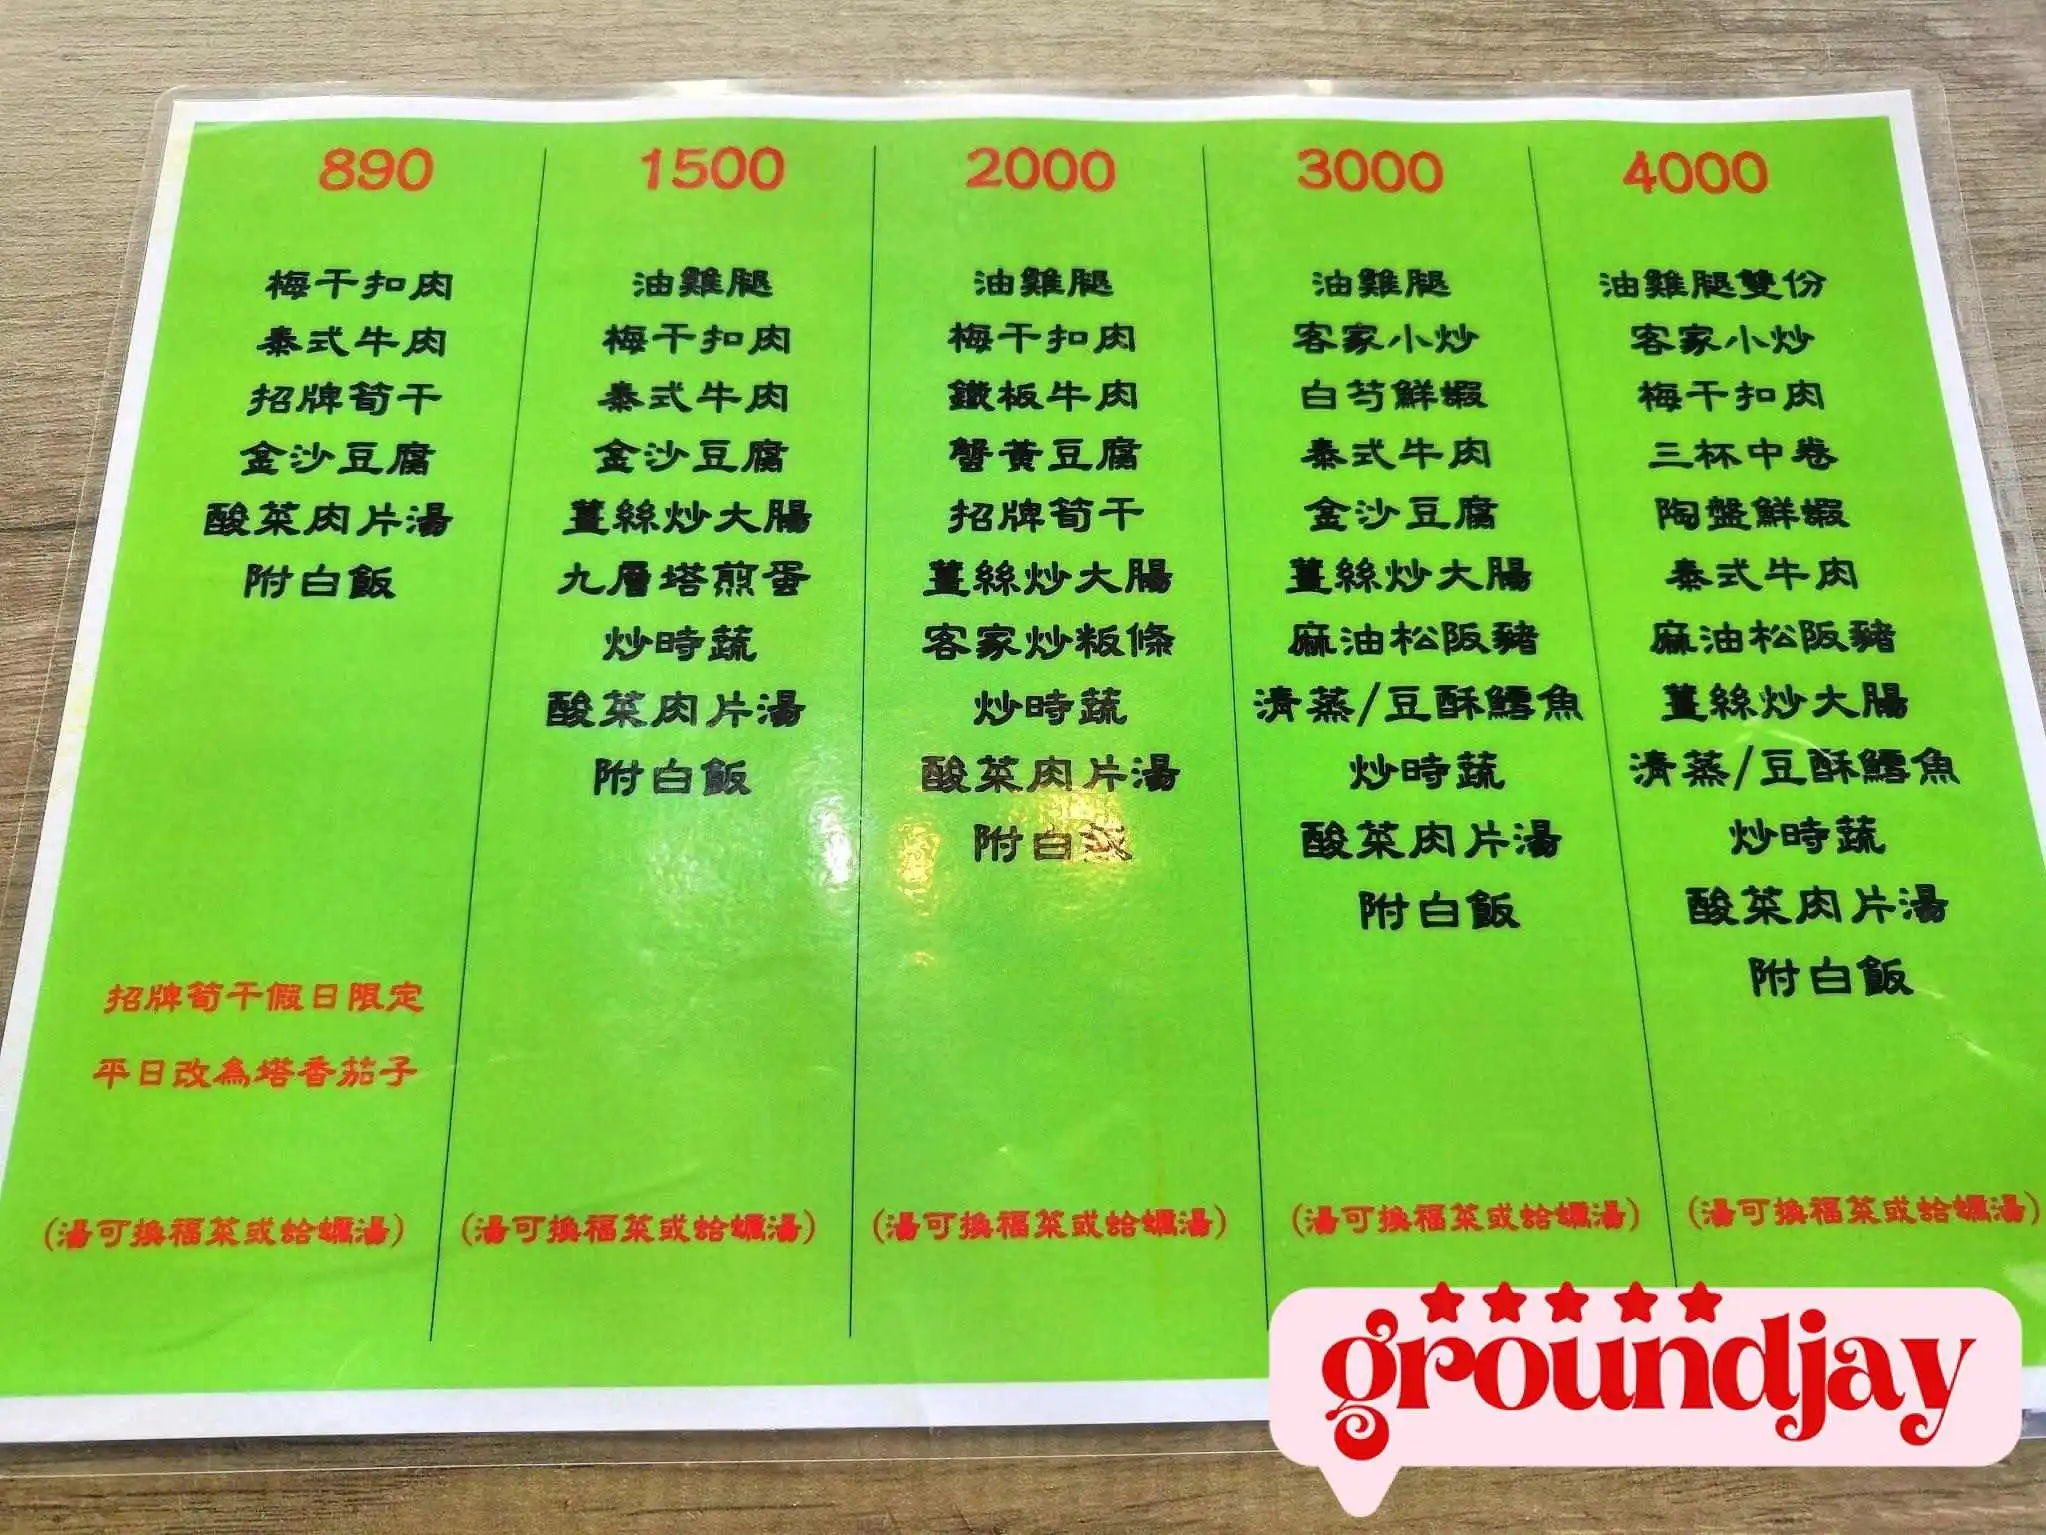 890
梅干扣肉
泰式牛肉
招牌筍干
金沙豆腐
酸菜肉片湯
附白飯
招牌筍干假日限定
平日改為塔香茄子
(湯可換福菜或蛤蠣湯)
1500
油雞腿
梅干扣肉
泰式牛肉
金沙豆腐
薑絲炒大腸
九層塔煎蛋
炒時蔬
酸菜肉片湯
附白飯
(湯可換福菜或蛤蠣湯)
2000
油雞腿
梅干扣肉
鐵板牛肉
蟹黃豆腐
招牌筍干
薑絲炒大腸
客家炒粄條
炒時蔬
酸菜肉片湯
附白飯
(湯可換福菜或蛤蠣湯)
3000
油雞腿
客家小炒
白芍鮮蝦
泰式牛肉
金沙豆腐
薑絲炒大腸
麻油松阪豬
清蒸/豆酥鱈魚
炒時蔬
酸菜肉片湯
附白飯
(湯可換福菜或蛤蠣湯)
4000
油雞腿雙份
客家小炒
梅干扣肉
三杯中卷
陶盤鮮蝦
泰式牛肉
麻油松阪豬
薑絲炒大腸
清蒸/豆酥鱈魚
炒時蔬
酸菜肉片湯
附白飯
(湯可換福菜或蛤蠣湯)
groundjay